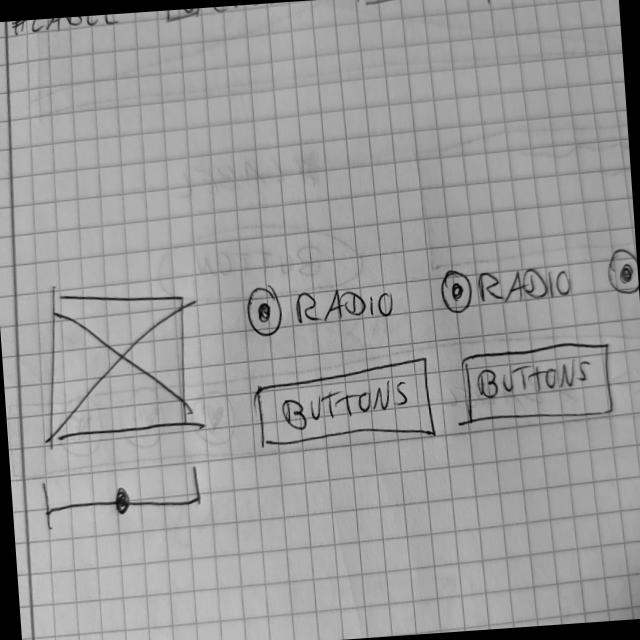 RADIO RADIO
BUTTONS BUTTONS